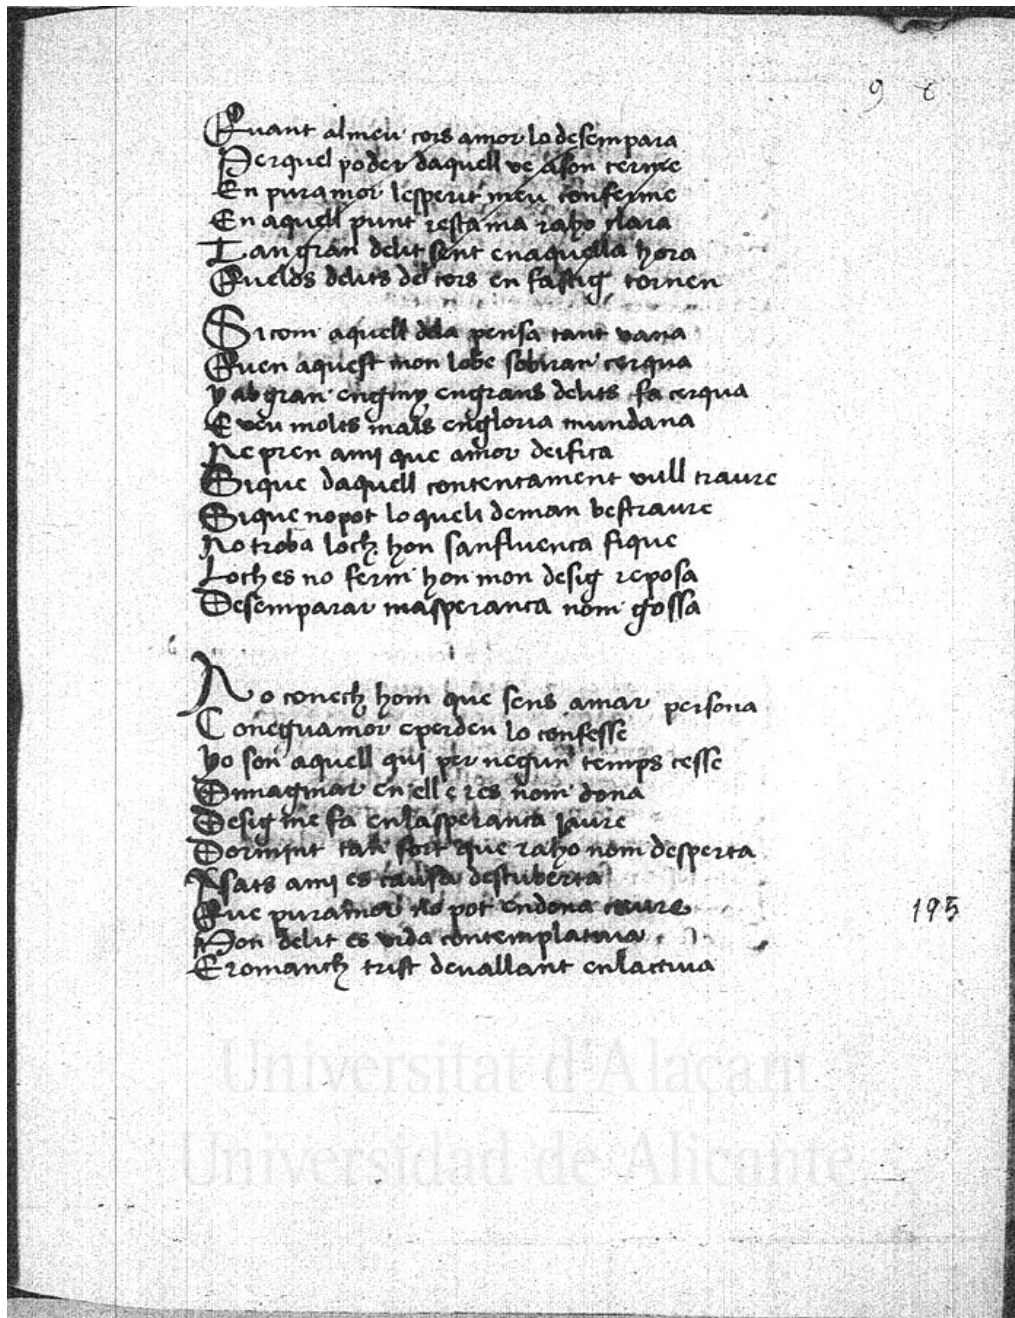 9 c
Quant almeu cors amor lo desempara
Perquel poder daquell ve ason terme
En puramor lesperit meu conferme
En aquell punt resta ma raho clara
Tan gran delit sent enaquella hora
Quelos delits del cors en fastig tornen
Si com aquell dela pensa tant vana
Quen aquest mon lobe sobiran cerqua
y ab gran enginy engrans delits fa cerqua
E veu molts mals engloria mundana
Ne pren ami que amor deifica
Sique daquell contentament vull traure
Sique nopot lo queli deman bestraure
No troba loch hon sanfluenca fique
Loch es no ferm hon mon desig reposa
Desemparar masperanca nom gossa
No conech hom que sens amar persona
Conegu amor e perden lo confesse
yo son aquell qui per negun temps cesse
Dimaginar en ell e res nom dona
Desig me fa enlasperanca jaure
Dormint tan fort que raho nom desperta
Asats ami es causa descuberta
Que puramor no pot endona caure
Son delit es vida contemplativa
E romanch trist devallant enlactiva
195
Universitat d'Alacant
Universidad de Alicante